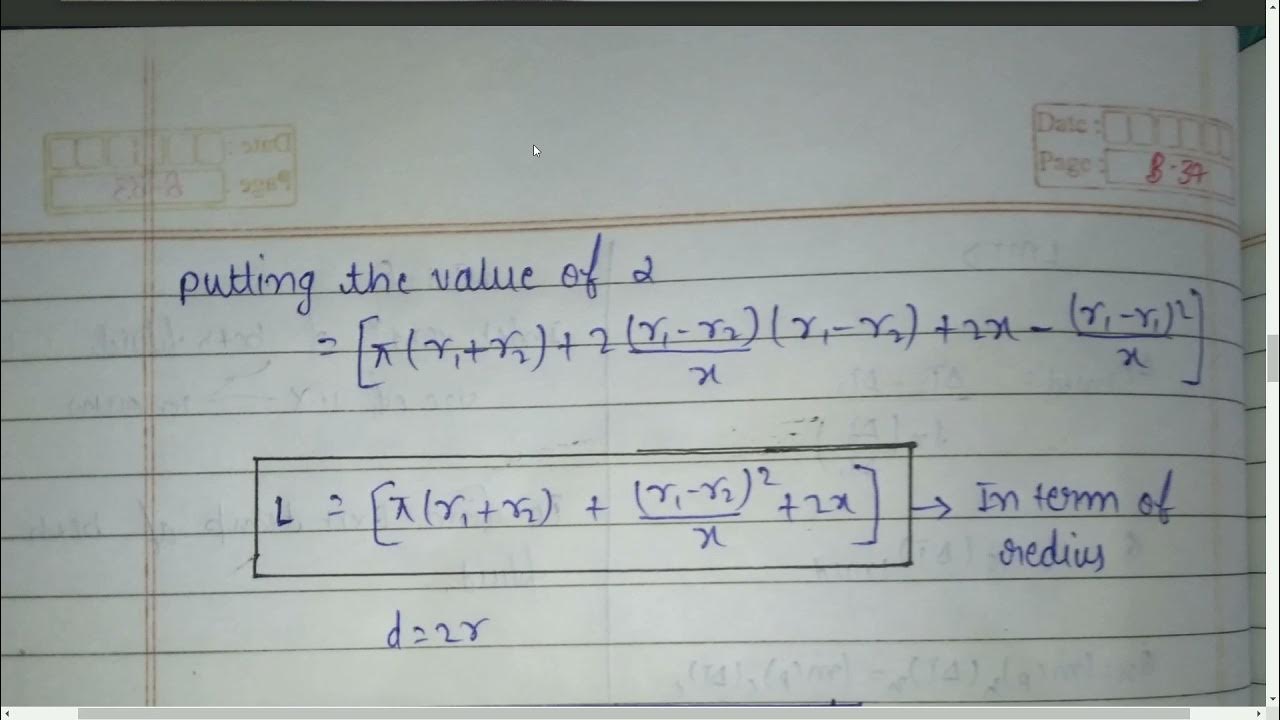 Date :
Page : B-37
putting the value of α
= [π(r₁+r₂) + 2 (r₁-r₂)/x (r₁-r₂) + 2x - (r₁-r₁)²/x]
L = [π(r₁+r₂) + (r₁-r₂)²/x + 2x] → In term of
redius
d=2r